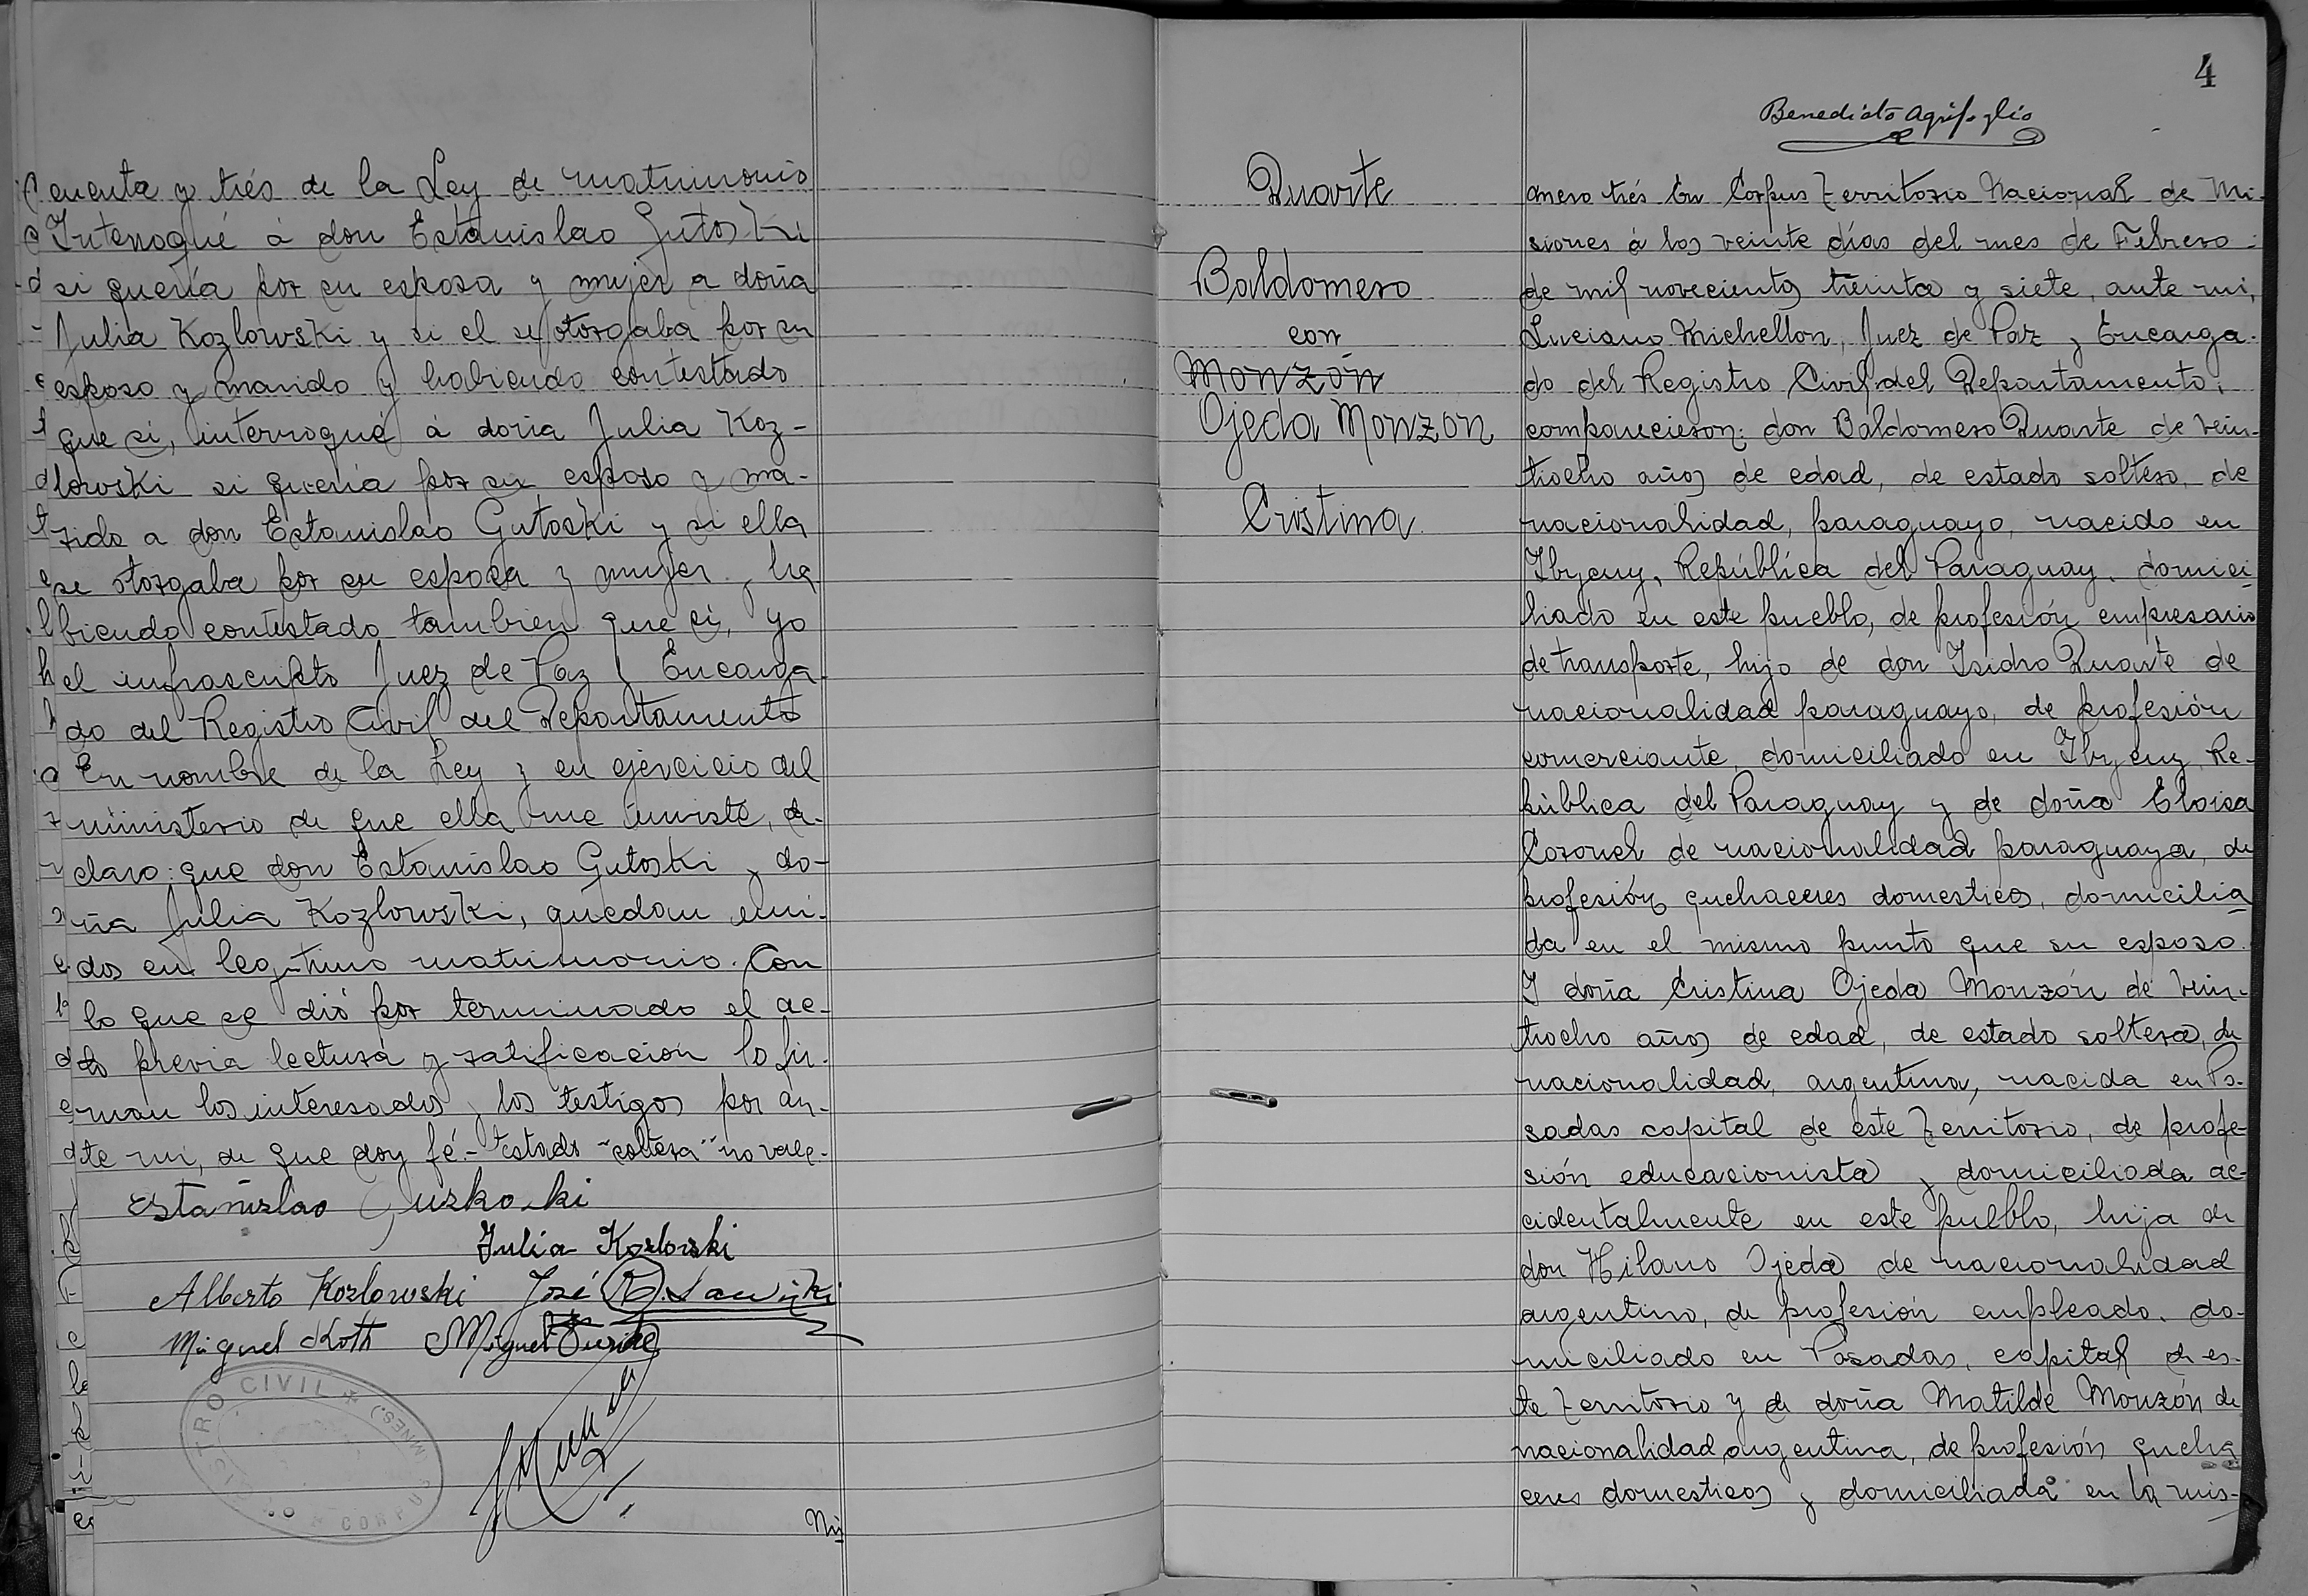 cuenta y trés de la Ley de matrimonio
Interrogué á don Estanislao Gutoski
si quería por su esposa y mujer a doña
Julia Kozlowski y si el se otorgaba por su
esposo y marido y habiendo contestado
que si, interrogué á doña Julia Koz-
lowski si quería por su esposo y ma-
rido a don Estanislao Gutoski y si ella
se otorgaba por su esposa y mujer y ha
biendo contestado tambien que si, yo
el infrascripto Juez de Paz y Encarga-
do del Registro Civil del Departamento
En nombre de la Ley y en ejercicio del
ministerio de que ella me inviste, de-
claro: que don Estanislao Gutoski y do-
ña Julia Kozlowski, quedan uni-
dos en legitimo matrimonio. Con
lo que se dió por terminado el ac-
to previa lectura y ratificación lo fir-
man los interesados y los testigos por an-
te mi, de que doy fé.- estado "soltera" no vale.-
Estanislao Guzkoski
Julia Kozlovski
Alberto Kozlowski José
Miguel Koth Miguel
REGISTRO CIVIL
Nú
4
Benedicto Agrifoglio
Duarte
Baldomero
con
Monzón
Ojeda Monzon
Cristina
mero trés En Corpus Territorio Nacional de Mi-
siones á los veinte días del mes de Febrero
de mil novecientos treinta y siete, ante mi,
Luciano Michellon, Juez de Paz y Encarga-
do del Registro Civil del Departamento,
comparecieron: don Baldomero Duarte de vein-
tiocho años de edad, de estado soltero, de
nacionalidad, paraguayo, nacido en
Ibycuy, República del Paraguay, domici
liado en este pueblo, de profesión empresario
de transporte, hijo de don Isidro Duarte de
nacionalidad paraguayo, de profesión
comerciante, domiciliado en Ibycuy Re-
pública del Paraguay y de doña Eloisa
Coronel de nacionalidad paraguaya, de
profesión quehaceres domesticos, domicilia
da en el mismo punto que su esposo.
I doña Cristina Ojeda Monzón de vein-
tiocho años de edad, de estado soltera, de
nacionalidad, argentina, nacida en Po-
sadas capital de este Territorio, de profe-
sión educacionista y domiciliada ac-
cidentalmente en este pueblo, hija de
don Hilario Ojeda de nacionalidad
argentino, de profesión empleado, do-
miciliado en Posadas, capital de es-
te Territorio y de doña Matilde Monzón de
nacionalidad argentina, de profesión queha
ceres domesticos y domiciliada en la mis-